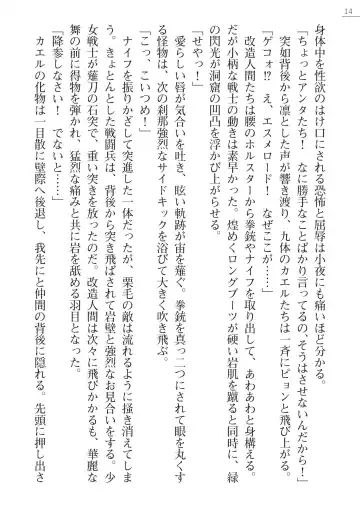 14
身体中を性欲のはけ口にされる恐怖と屈辱は小夜にも痛いほど分かる。
「ちょっとアンタたち！　なに勝手なことばかり言ってるの、そうはさせないんだから！」
突如背後から凛とした声が響き渡り、九体のカエルたちは一斉にピョンと飛び上がる。
「ゲコォ!?　え、エスメロード！　なぜここが――」
改造人間たちは腰のホルスターから拳銃やナイフを取り出して、あわあわと身構える。
だが小柄な戦士の動きは素早かった。煌めくロングブーツが硬い岩肌を蹴ると同時に、緑
の閃光が洞窟の凹凸を浮かび上がらせる。
「せやっ！」
愛らしい唇が気合いを吐き、眩い軌跡が宙を薙ぐ。拳銃を真っ二つにされて目を丸くす
る怪物は、次の刹那強烈なサイドキックを浴びて大きく吹き飛ぶ。
「こっ、こいつめ！」
ナイフを振りかざして突進した一体だったが、栗毛の敵は流れるように掻き消えてしま
う。きょとんとした戦闘兵は、背後から突き飛ばされて岩壁と強烈なお見合いをする。少
女戦士が薙刀の石突で、重い突きを放ったのだ。改造人間は次々に飛びかかるも、華麗な
舞の前に得物を弾かれ、猛烈な痛みと共に岩を舐める羽目となった。
「降参しなさい！　でないと……」
カエルの化物は一目散に壁際へ後退し、我先にと仲間の背後に隠れる。先頭に押し出さ